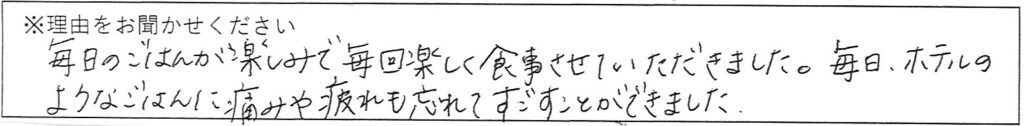 ※理由をお聞かせください
毎日のごはんが楽しみで毎回楽しく食事させていただきました。毎日、ホテルの
ようなごはんに痛みや疲れも忘れてすごすことができました.